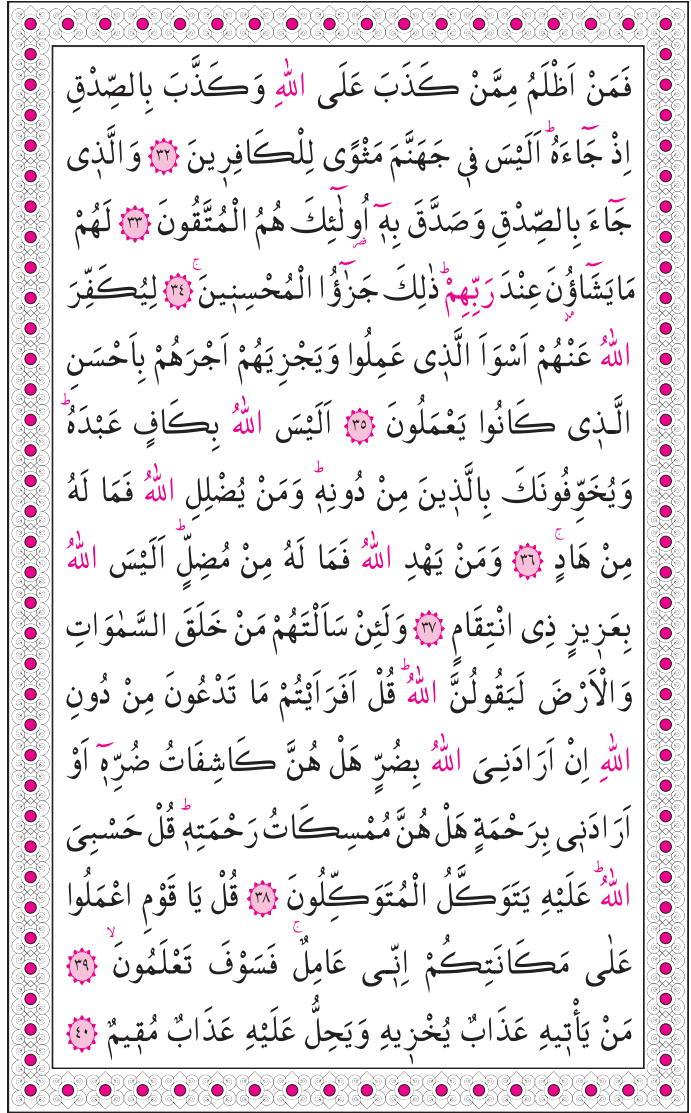 فَمَنْ اَظْلَمُ مِمَّنْ كَذَبَ عَلَى اللّٰهِ وَكَذَّبَ بِالصِّدْقِ
اِذْ جَٓاءَهُۜ اَلَيْسَ ف۪ي جَهَنَّمَ مَثْوًى لِلْكَافِر۪ينَ ﴿٣٢﴾ وَالَّذ۪ى
جَٓاءَ بِالصِّدْقِ وَصَدَّقَ بِه۪ٓ اُو۬لٰٓئِكَ هُمُ الْمُتَّقُونَ ﴿٣٣﴾ لَهُمْ
مَايَشَٓاؤُ۫نَ عِنْدَ رَبِّهِمْۜ ذٰلِكَ جَزٰٓؤُا الْمُحْسِن۪ينَۚ ﴿٣٤﴾ لِيُكَفِّرَ
اللّٰهُ عَنْهُمْ اَسْوَاَ الَّذ۪ى عَمِلُوا وَيَجْزِيَهُمْ اَجْرَهُمْ بِاَحْسَنِ
الَّذ۪ى كَانُوا يَعْمَلُونَ ﴿٣٥﴾ اَلَيْسَ اللّٰهُ بِكَافٍ عَبْدَهُۜ
وَيُخَوِّفُونَكَ بِالَّذ۪ينَ مِنْ دُونِه۪ۜ وَمَنْ يُضْلِلِ اللّٰهُ فَمَا لَهُ
مِنْ هَادٍۚ ﴿٣٦﴾ وَمَنْ يَهْدِ اللّٰهُ فَمَا لَهُ مِنْ مُضِلٍّۜ اَلَيْسَ اللّٰهُ
بِعَز۪يزٍ ذِى انْتِقَامٍ ﴿٣٧﴾ وَلَئِنْ سَاَلْتَهُمْ مَنْ خَلَقَ السَّمٰوَاتِ
وَالْاَرْضَ لَيَقُولُنَّ اللّٰهُۜ قُلْ اَفَرَاَيْتُمْ مَا تَدْعُونَ مِنْ دُونِ
اللّٰهِ اِنْ اَرَادَنِىَ اللّٰهُ بِضُرٍّ هَلْ هُنَّ كَاشِفَاتُ ضُرِّه۪ٓ اَوْ
اَرَادَن۪ى بِرَحْمَةٍ هَلْ هُنَّ مُمْسِكَاتُ رَحْمَتِه۪ۜ قُلْ حَسْبِىَ
اللّٰهُۜ عَلَيْهِ يَتَوَكَّلُ الْمُتَوَكِّلُونَ ﴿٣٨﴾ قُلْ يَا قَوْمِ اعْمَلُوا
عَلٰى مَكَانَتِكُمْ اِنّ۪ى عَامِلٌۚ فَسَوْفَ تَعْلَمُونَۙ ﴿٣٩﴾
مَنْ يَأْت۪يهِ عَذَابٌ يُخْز۪يهِ وَيَحِلُّ عَلَيْهِ عَذَابٌ مُق۪يمٌ ﴿٤٠﴾